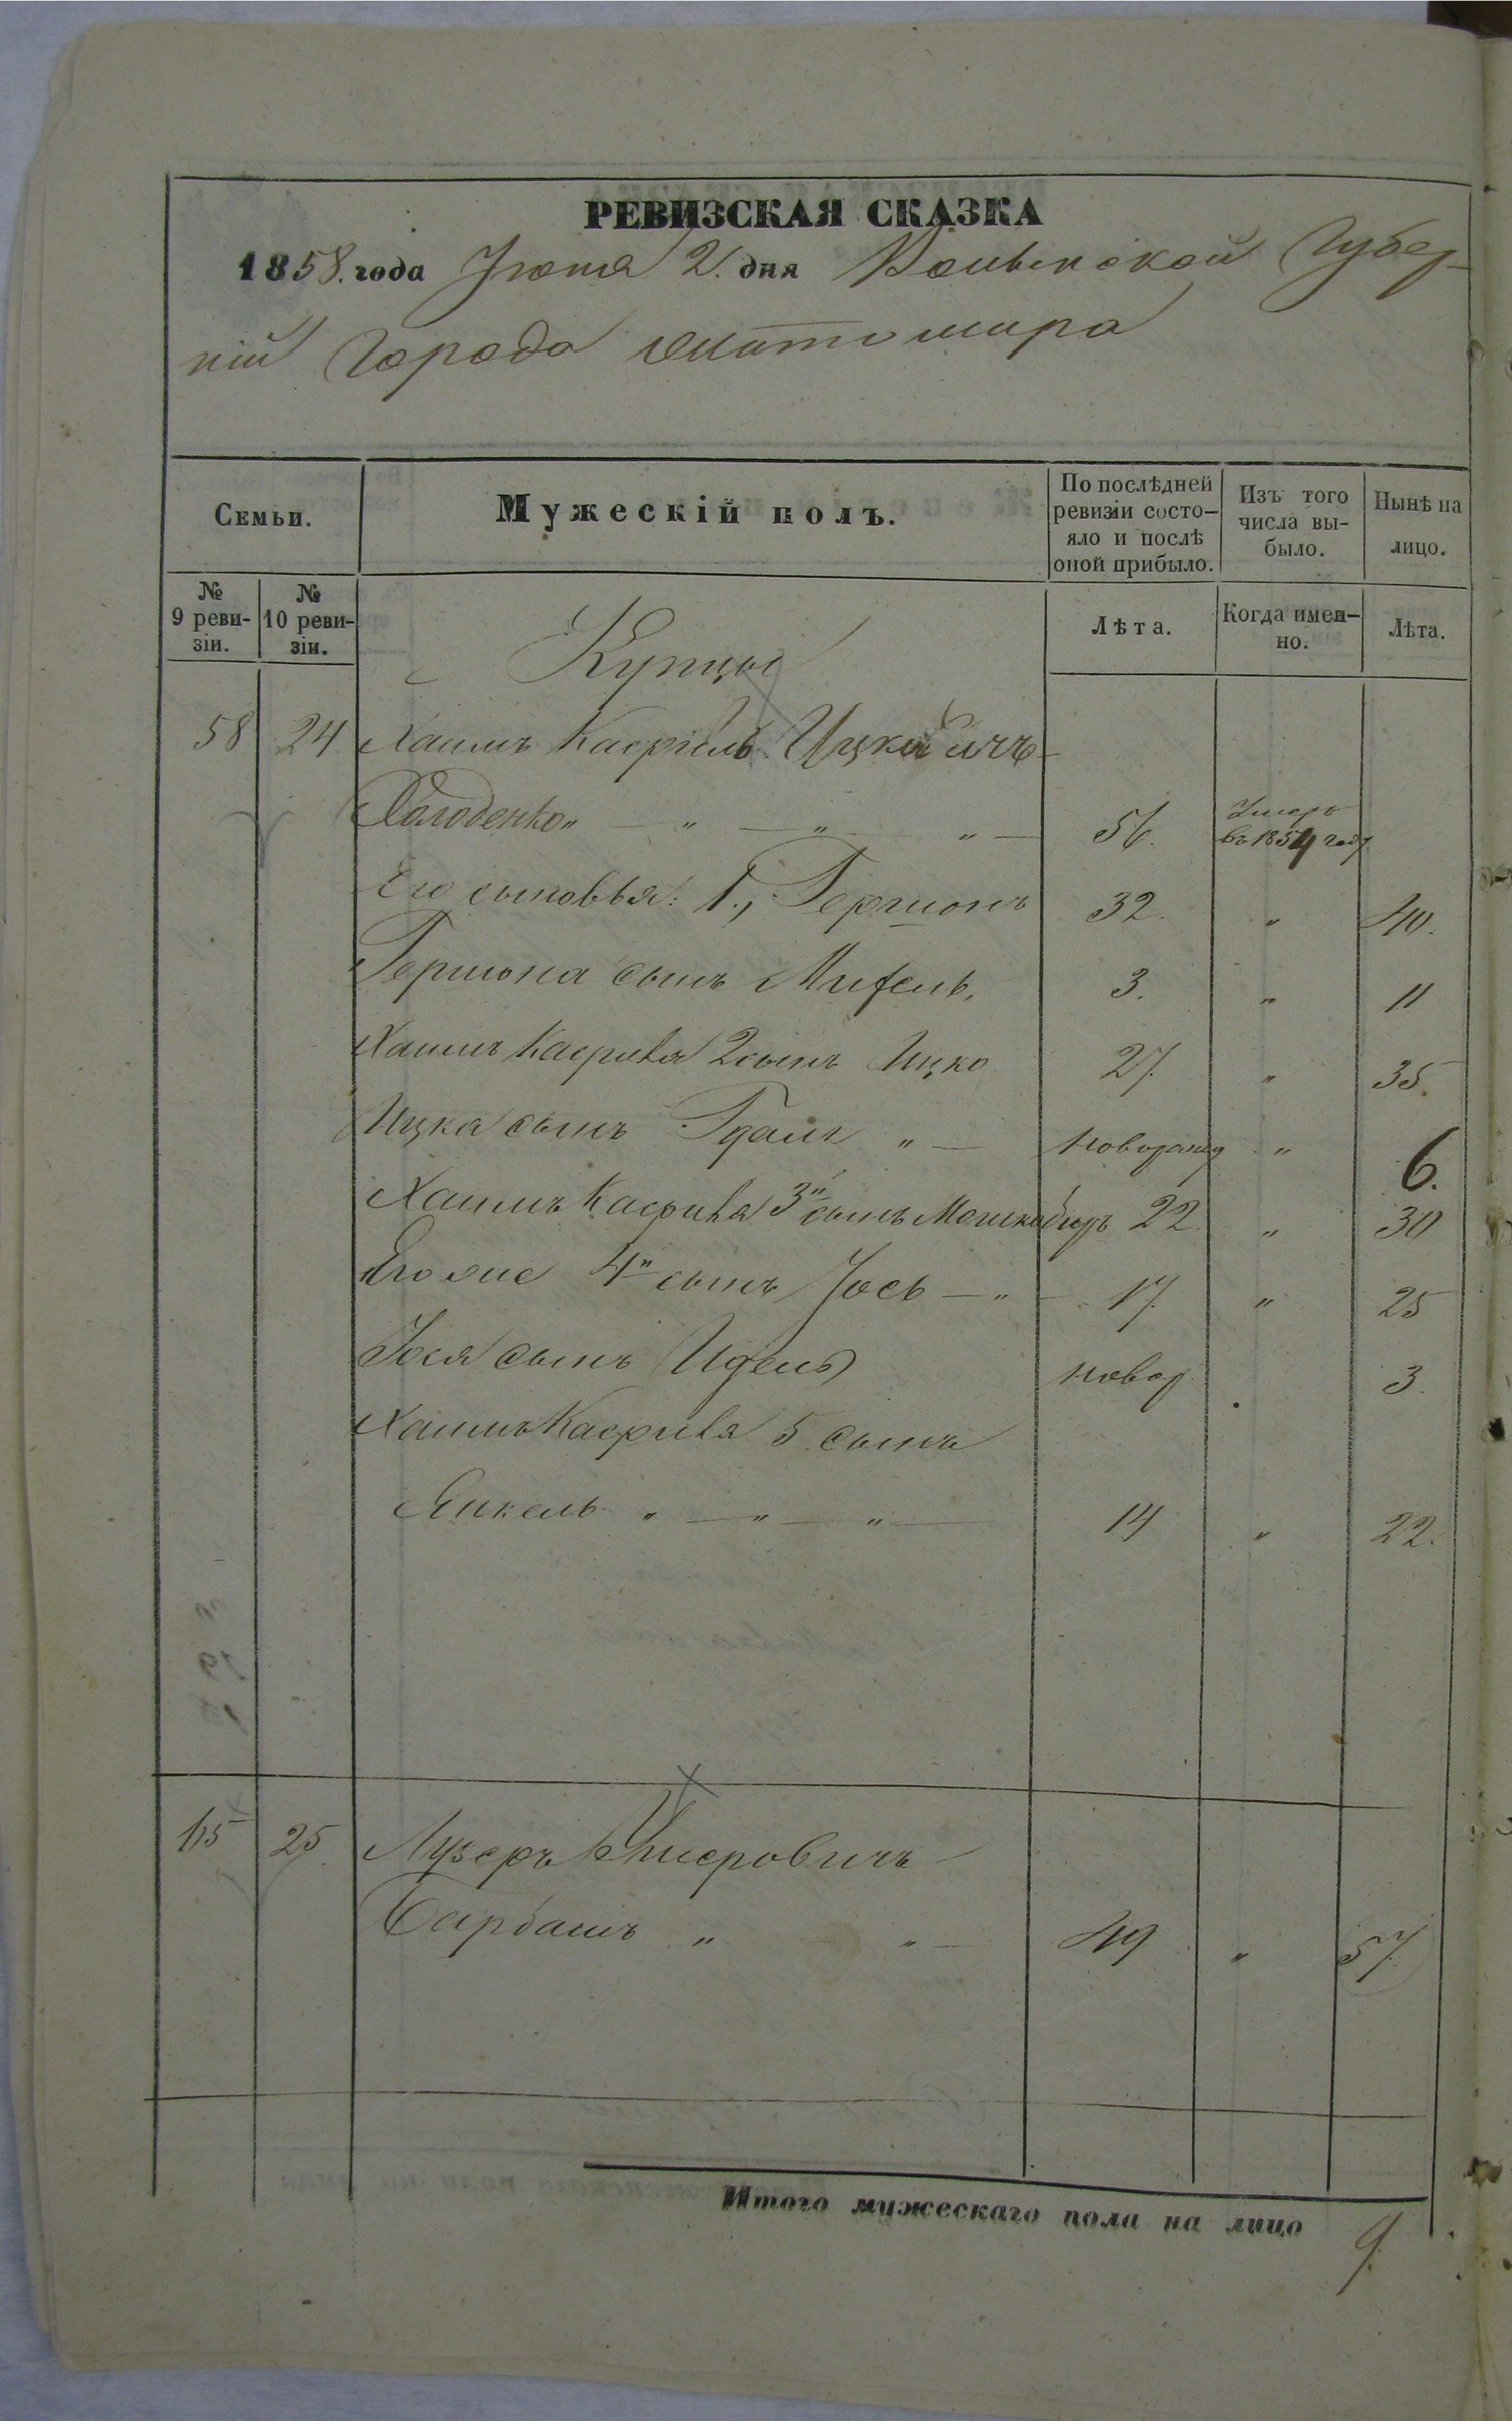 РЕВИЗСКАЯ СКАЗКА
1858. года Іюня 2. дня Волынской Губер-
ніи Города Житомира
Семьи.
Мужескій полъ.
По послѣдней ревизіи состо-яло и послѣ оной прибыло.
Изъ того числа вы-было.
Нынѣ на лицо.
№ 9 реви-зіи.
№ 10 реви-зіи.
Лѣта.
Когда имен-но.
Лѣта.
Купцы
58 24 Хаимъ Касриль Ицковичъ
Холоденко „ — „ — „ — „ — 56. Умеръ въ 1854 году
Его сыновья: 1., Гершонъ 32. „ 40.
Гершона сынъ Михель, 3. „ 11
Хаимъ Касриля 2 сынъ Ицко 27. „ 35.
Ицка сынъ „ — новорожд „ 6.
Хаимъ Касриля 3й сынъ 22. „ 30
Его же 4й сынъ Іось — „ — 17. „ 25
Іося сынъ Идель новор. 3.
Хаимъ Касриля 5. сынъ
Янкель „ — „ — „ — 14 „ 22.
65 25. Лузеръ
Барбашъ „ — „ — 49 „ 57.
Итого мужескаго пола на лицо 9.